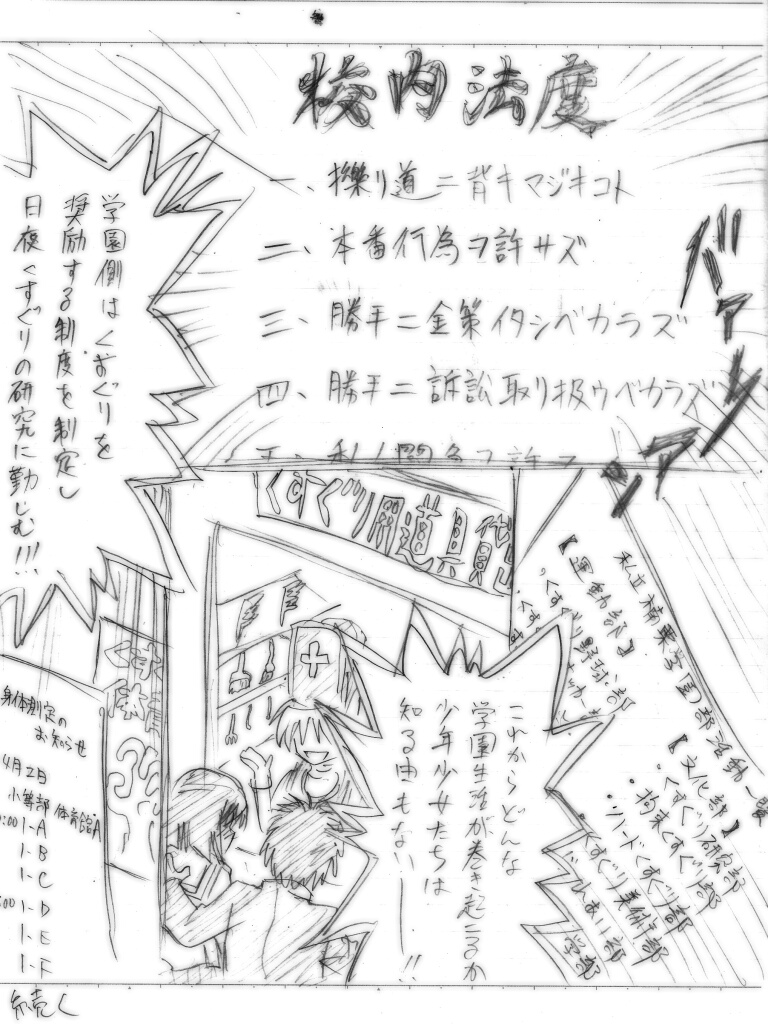 校内法度
一、擽り道ニ背キマジキコト
二、本番行為ヲ許サズ
三、勝手ニ金策イタシベカラズ
四、勝手ニ訴訟取リ扱ウベカラズ
バァァァン
学園側はくすぐりを
奨励する制度を制定し
日夜くすぐりの研究に勤しむ!!!
くすぐり用道具
私立擽栗学園部活動一覧
【運動部】
・くすぐり野球部
【文化部】
・くすぐり研究部
・拘束くすぐり部
・ソードくすぐり部
くすぐり美術部
これからどんな
学園生活が巻き起こるか
少年少女たちは
知る由もない――!!
くす
体育
身体測定の
お知らせ
4月2日
小等部 体育館A
1-A
1-B
1-C
1-D
1-E
1-F
続く